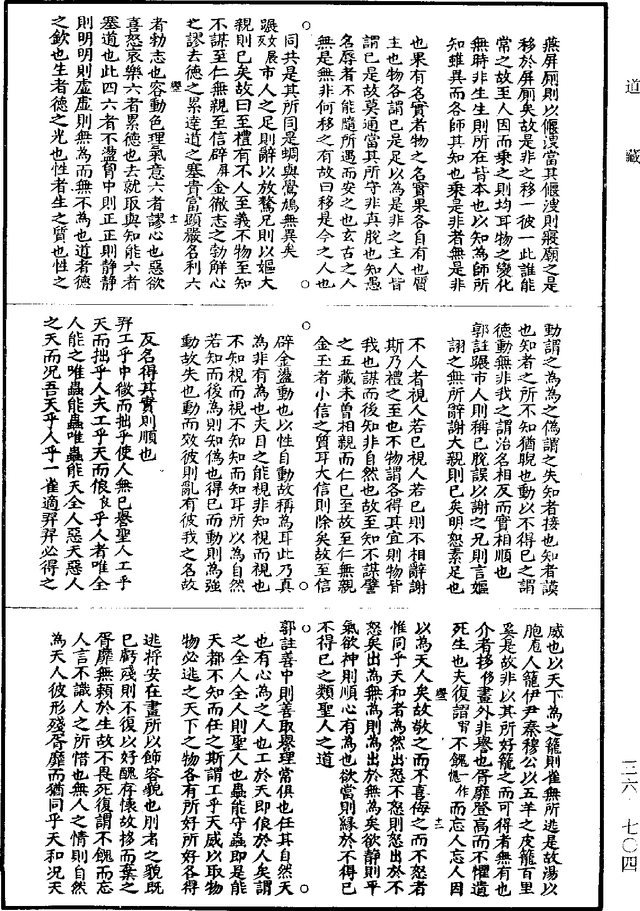 道藏
燕屏厠則以偃溲當其偃溲則寢廟之是
移於屏厠矣故是非之移一彼一此誰能
常之故至人因而乘之則均耳物之變化
無時非生生則所在皆本也以知為師所
知雖異而各師其知也乘是非者無是非
也果有名實者物之名實果各自有也質
主也物各謂已是足以為是非之主人皆
謂已是故莫通當其所守非真脫也知愚
名辱者不能隨所遇而安之也玄古之人
無是無非何移之有故曰移是今之人也
同共是其所同是蜩與鷽鳩無異矣
蹍市人之足則辭以放驁兄則以嫗大
親則已矣故曰至禮有不人至義不物至知
不謀至仁無親至信辟金徹志之勃解心
之謬去德之累達道之塞貴富顯嚴名利六
者勃志也容動色理氣意六者謬心也惡欲
喜怒哀樂六者累德也去就取與知能六者
塞道也此四六者不盪胷中則正正則靜靜
則明明則虛虛則無為而無不為也道者德
之欽也生者德之光也性者生之質也性之
動謂之為為之偽謂之失知者接也知者謨
也知者之所不知猶睨也動以不得已之謂
德動無非我之謂治名相反而實相順也
郭註蹍市人則稱已脫誤以謝之兄則言嫗
詡之無所辭謝大親則已矣明恕素足也
不人者視人若已視人若已則不相辭謝
斯乃禮之至也不物謂各得其宜則物皆
我也謀而後知非自然也故至知不謀譬
之五藏未曾相親而仁已至故至仁無親
金玉者小信之質耳大信則除矣故至信
辟金盪動也以性自動故稱為耳此乃真
為非有為也夫目之能視非知視而視也
不知視而視不知知而知耳所以為自然
若知而後為則知偽也得已而動則為強
動故失也動而效彼則亂有彼我之名故
反名得其實則順也
羿工乎中微而拙乎使人無已譽聖人工乎
天而拙乎人夫工乎天而俍乎人者唯全
人能之唯蟲能蟲唯蟲能天全人惡天惡人
之天而况吾天乎人乎一雀適羿羿必得之
威也以天下為之籠則雀無所逃是故湯以
胞人籠伊尹秦穆公以五羊之皮籠百里
奚是故非以其所好籠之而可得者無有也
介者拸畫外非譽也胥靡登高而不懼遺
死生也夫復謵不餽而忘人忘人因
以為天人矣故敬之而不喜侮之而不怒者
惟同乎天和者為然出怒不怒則怒出於不
怒矣出為無為則為出於無為矣欲靜則平
氣欲神則順心有為也欲當則緣於不得已
不得已之類聖人之道
郭註善中則善取譽理常俱也任其自然天
也有心為之人也工於天即俍於人矣謂
之全人全人則聖人也蟲能守蟲即是能
天都不知而任之斯謂工乎天威以取物
物必逃之天下之物各有所好所好各得
逃將安在畫所以飾容貌也刖者之貌既
已虧殘則不復以好醜存懷故拸而棄之
胥靡無賴於生故不畏死復謂不餽而忘
人言不識人之所惜也無人之情則自然
為天人彼形殘胥靡而猶同乎天和况天
三六·七〇四